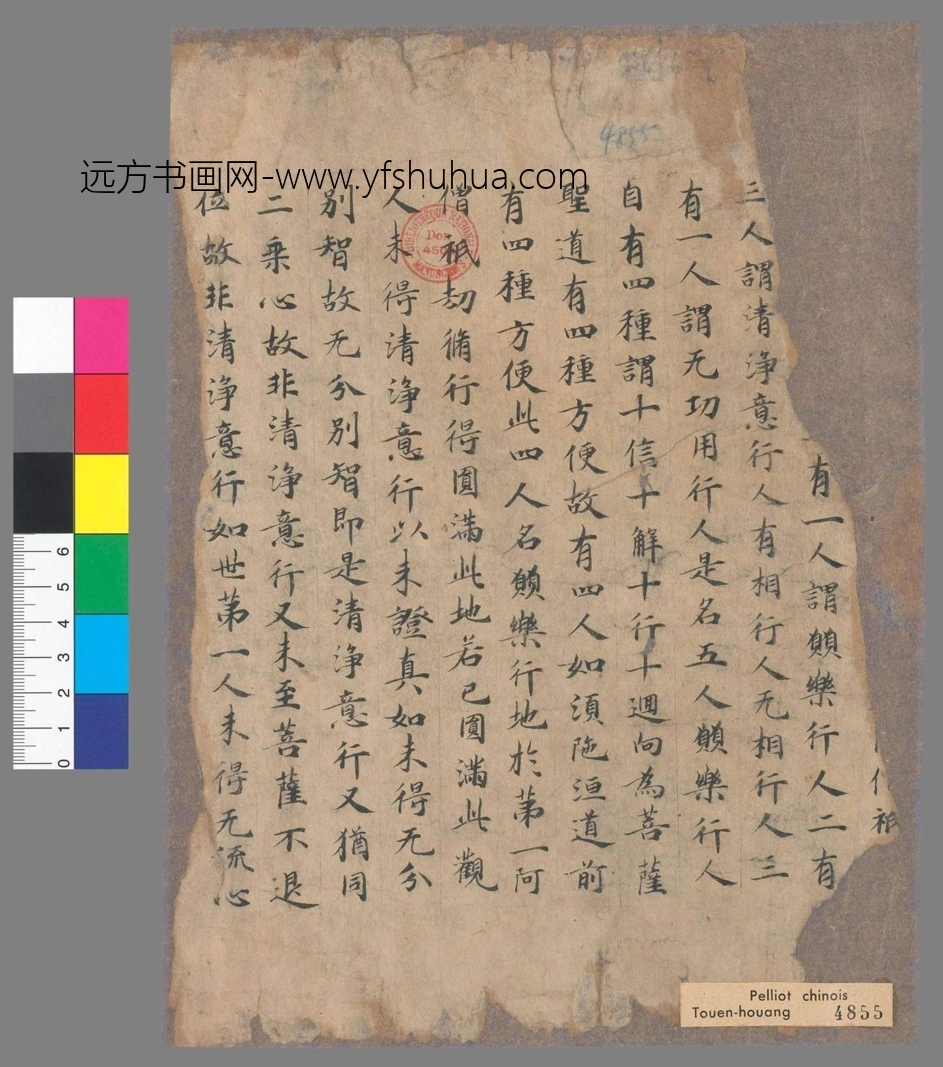 远方书画网-www.yfshuhua.com
4855
祇
有一人謂願樂行人二有
三人謂清淨意行人有相行人无相行人三
有一人謂无功用行人是名五人願樂行人
自有四種謂十信十解十行十迴向為菩薩
聖道有四種方便故有四人如須陁洹道前
有四種方便此四人名願樂行地於第一阿
僧祇劫脩行得圓滿此地若已圓滿此觀
人未得清淨意行以未證真如未得无分
別智故无分別智即是清淨意行又猶同
二乗心故非清淨意行又未至菩薩不退
位故非清淨意行如世第一人未得无流心
Pelliot chinois
Touen-houang 4855
0 1 2 3 4 5 6